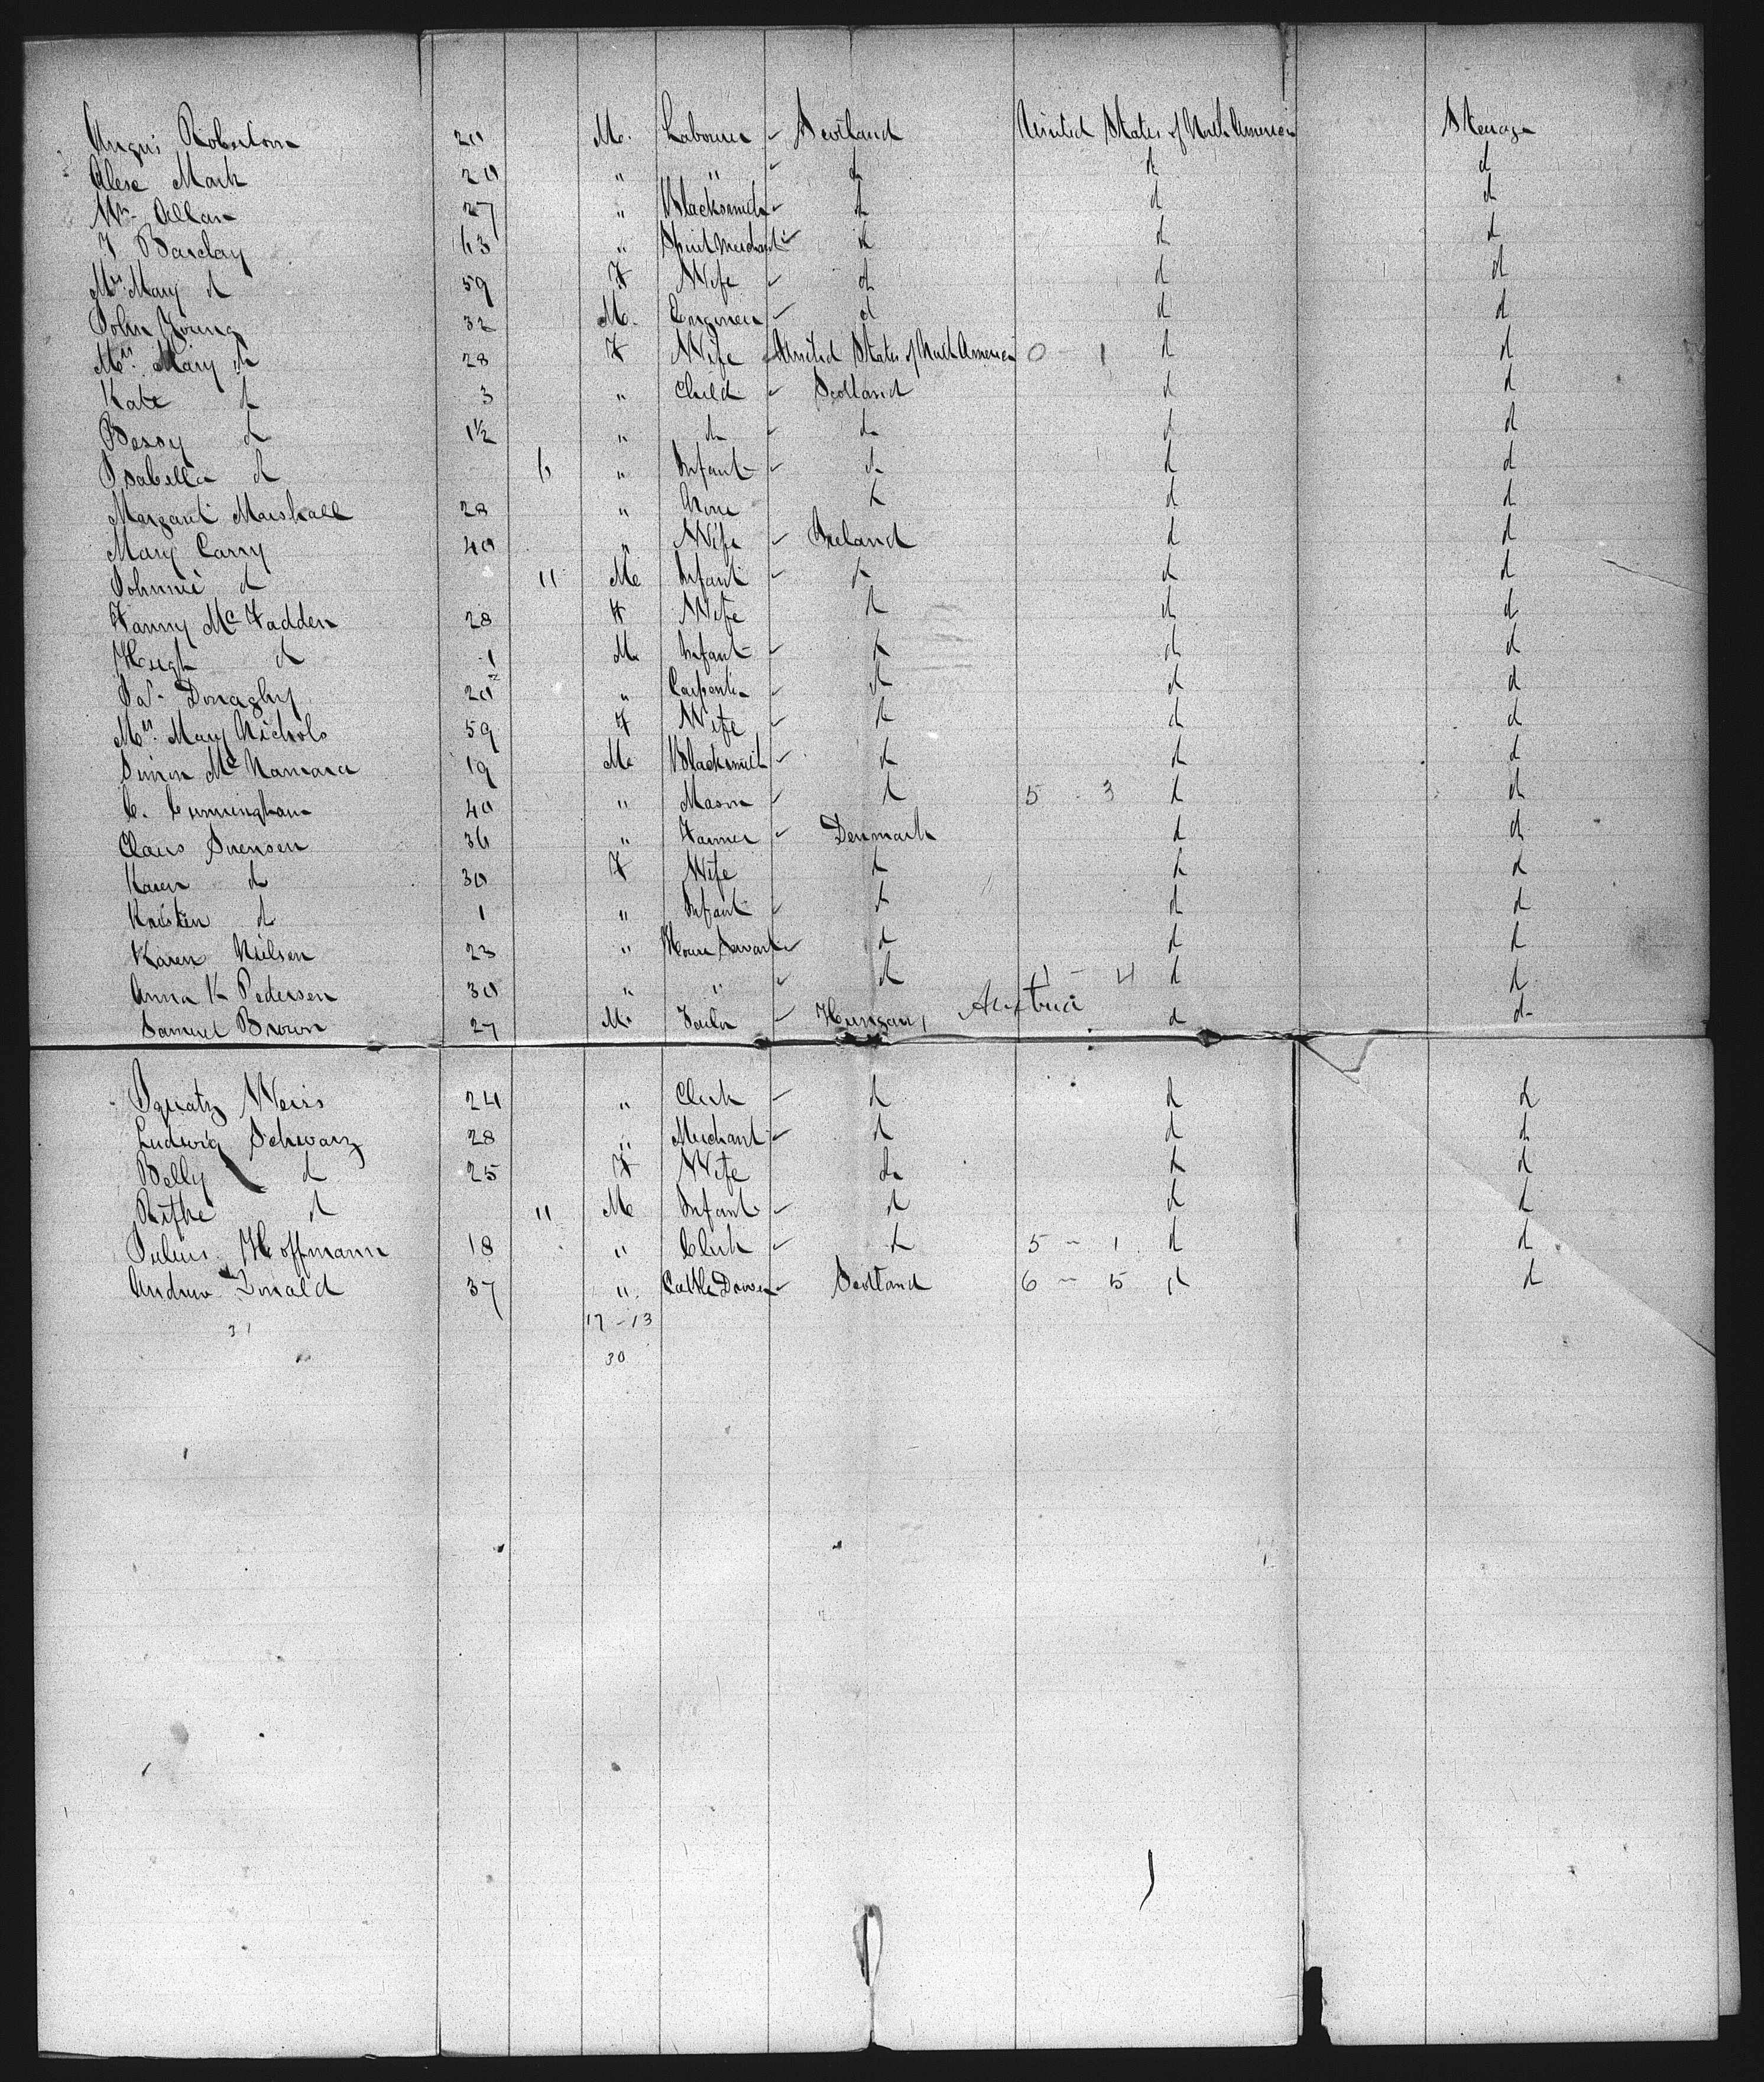 Angus Robertson 20 M. Labourer Scotland United States of North America Steerage
Alexr Mark 20 " " do do do
Wm Allan 27 " Blacksmith do do do
J Barclay 63 " Spirit Merchant do do do
Mrs Mary do 59 F Wife do do do
John Young 32 M. Engineer do do do
Mrs Mary do 28 F Wife United States of North America 0 - 1 do do
Kate do 3 " Child Scotland do do
Bessy do 1½ " do do do do
Isabella do 6 " Infant do do do
Margaret Marshall 28 " None do do do
Mary Carry 40 " Wife Ireland do do
Johnnie do 11 M Infant do do do
Fanny McFadden 28 F Wife do do do
Hugh do 1 M Infant do do do
Pat. Donaghy 20 " Carpenter do do do
Mrs Mary Nichols 59 F Wife do do do
Simon McNamara 19 M Blacksmith do do do
C. Cunningham 40 " Mason do 5 - 3 do do
Claus Svensen 36 " Farmer Denmark do do
Karen do 30 F Wife do do do
Kristen do 1 " Infant do do do
Karen Nielsen 23 " House Servant do do do
Anna K Pedersen 30 " " do - 4 do do
Samuel Brown 27 M Tailor Hungary Austria do do
Ignatz Weiss 24 " Clerk do do do
Ludwig Schwarz 28 " Merchant do do do
Betty do 25 F Wife do do do
Rifke do 11 M Infant do do do
Julius Hoffmann 18 " Clerk do 5 - 1 do do
Andrew Donald 37 " Cattle Drover Scotland 6 - 5 do do
31 17 - 13
30